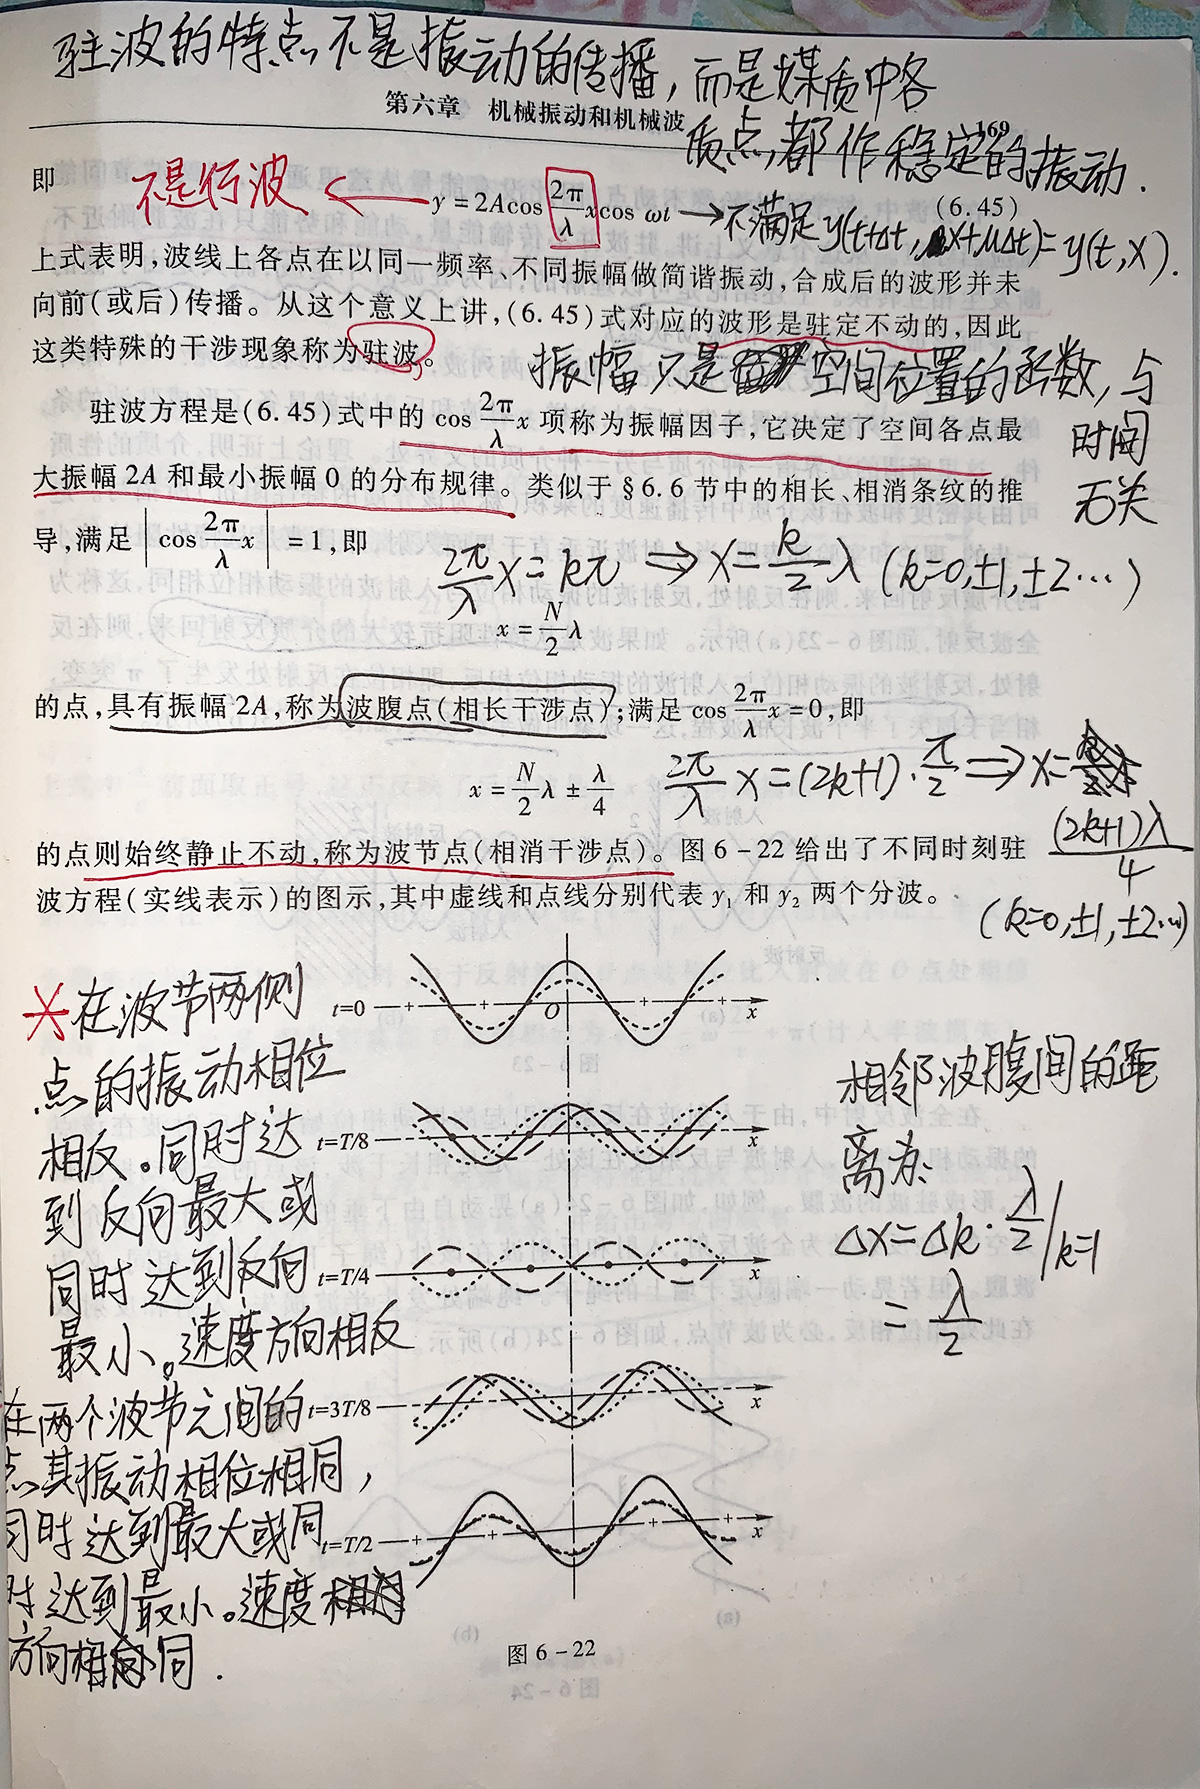 驻波的特点不是振动的传播，而是媒质中各
质点都作稳定的振动.
第六章 机械振动和机械波
169
即
不是行波
y = 2Acos 2π/λ x cos ωt
(6.45)
→不满足y(t+Δt, x+uΔt)=y(t,x).
上式表明,波线上各点在以同一频率、不同振幅做简谐振动,合成后的波形并未
向前(或后)传播。从这个意义上讲,(6.45)式对应的波形是驻定不动的,因此
这类特殊的干涉现象称为驻波。
振幅只是空间位置的函数,与
时间
无关
驻波方程是(6.45)式中的 cos 2π/λ x 项称为振幅因子,它决定了空间各点最
大振幅 2A 和最小振幅 0 的分布规律。类似于 § 6.6 节中的相长、相消条纹的推
导,满足 |cos 2π/λ x| = 1,即
2π/λ x = kπ ⇒ x = k/2 λ (k=0,±1,±2…)
x = N/2 λ
的点,具有振幅 2A,称为波腹点(相长干涉点);满足 cos 2π/λ x = 0,即
x = N/2 λ ± λ/4
2π/λ x = (2k+1)·π/2 ⇒ x =
(2k+1)λ/4
(k=0,±1,±2…)
的点则始终静止不动,称为波节点(相消干涉点)。图 6-22 给出了不同时刻驻
波方程(实线表示)的图示,其中虚线和点线分别代表 y₁ 和 y₂ 两个分波。
※在波节两侧
点的振动相位
相反。同时达
到反向最大或
同时达到反向
最小。速度方向相反
在两个波节之间的
点其振动相位相同，
同时达到最大或同
时达到最小。速度
方向相同.
t=0
+ + O + x
t=T/8
x
t=T/4
x
t=3T/8
x
t=T/2
+ + + + x
图 6-22
相邻波腹间的距
离为:
Δx=Δk·λ/2|k=1
= λ/2